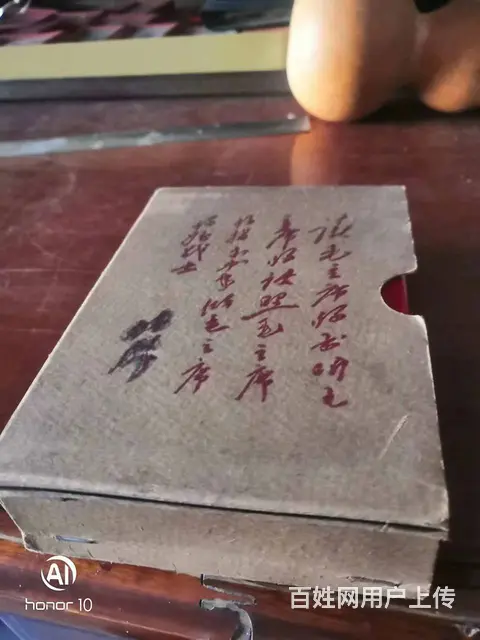 读毛主席的书听毛
主席的话照毛主席
的指示办事做毛主席
的好战士
AI
honor 10
百姓网用户上传